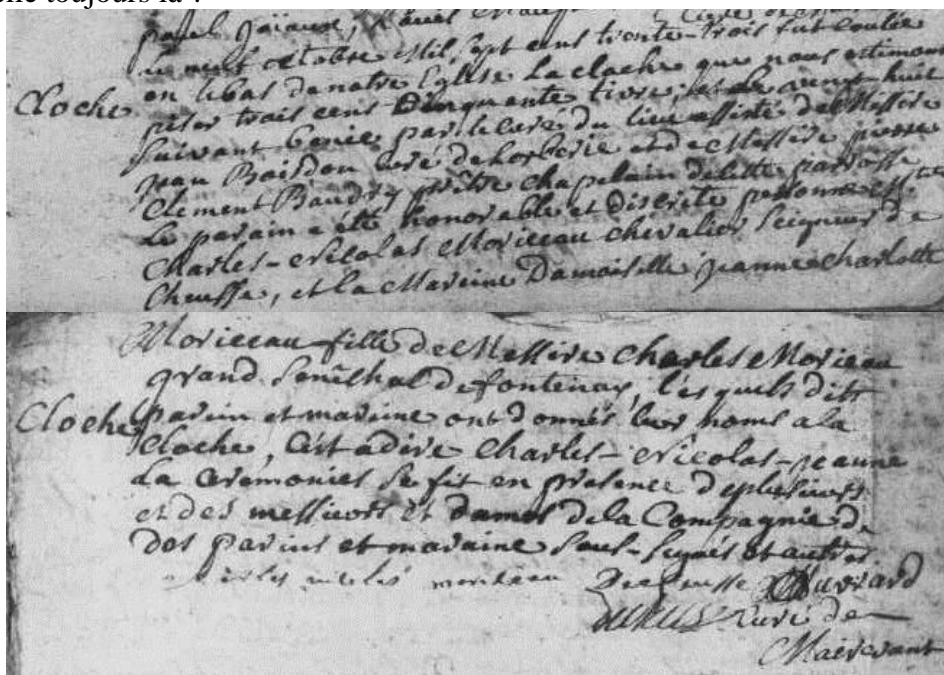 elle toujours là ?
Le neuf octobre Mil Sept cens trente-trois fut coulée
en le bas de notre Eglise la cloche que nous estimons
Cloche
peser trois cent Cinquante livre, et le vingt huit
Suivant benie par le curé du lieu assisté de Messire
jean Boisdon curé de et de Messire pierre
Clement Baudry prêtre chapelain de cette parroisse
Le parain a été honorable et discrete personne
Charles-Nicolas Moriceau chevalier Seigneur de
Cheusse, et la Maraine Damoiselle jeanne charlotte
Moriceau fille de Messire Charles Moriceau
grand Senéchal de fontenay, lesquels dits
Cloche
parain et maraine ont donnés leur noms a la
Cloche, C'est a dire Charles-Nicolas-jeanne
La ceremonies se fit en presence de plusieurs
et des messieurs et Dames de la Compagnie de
Dos parins et maraine Sous-Signés et autres
moriceau Decheusse Ouvrard
Curé de
Mairevant